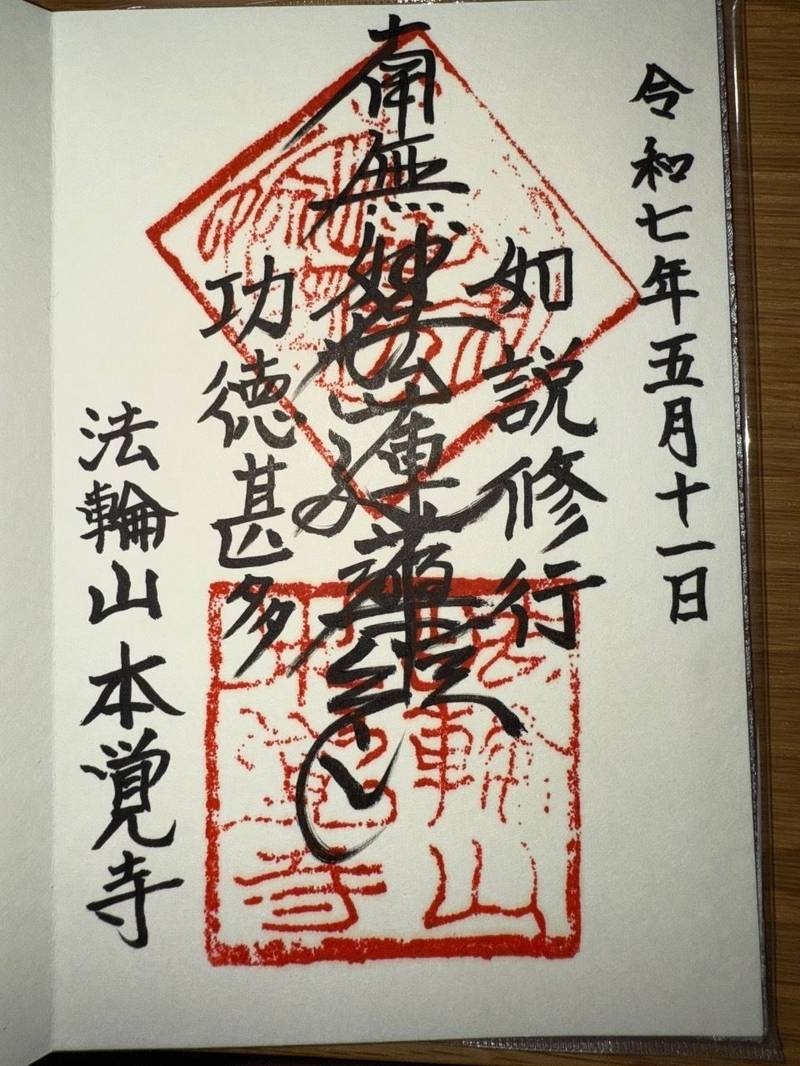 令和七年五月十一日
如説修行
南無妙法蓮華経
功徳甚多
法輪山本覚寺
法輪山
本覚寺